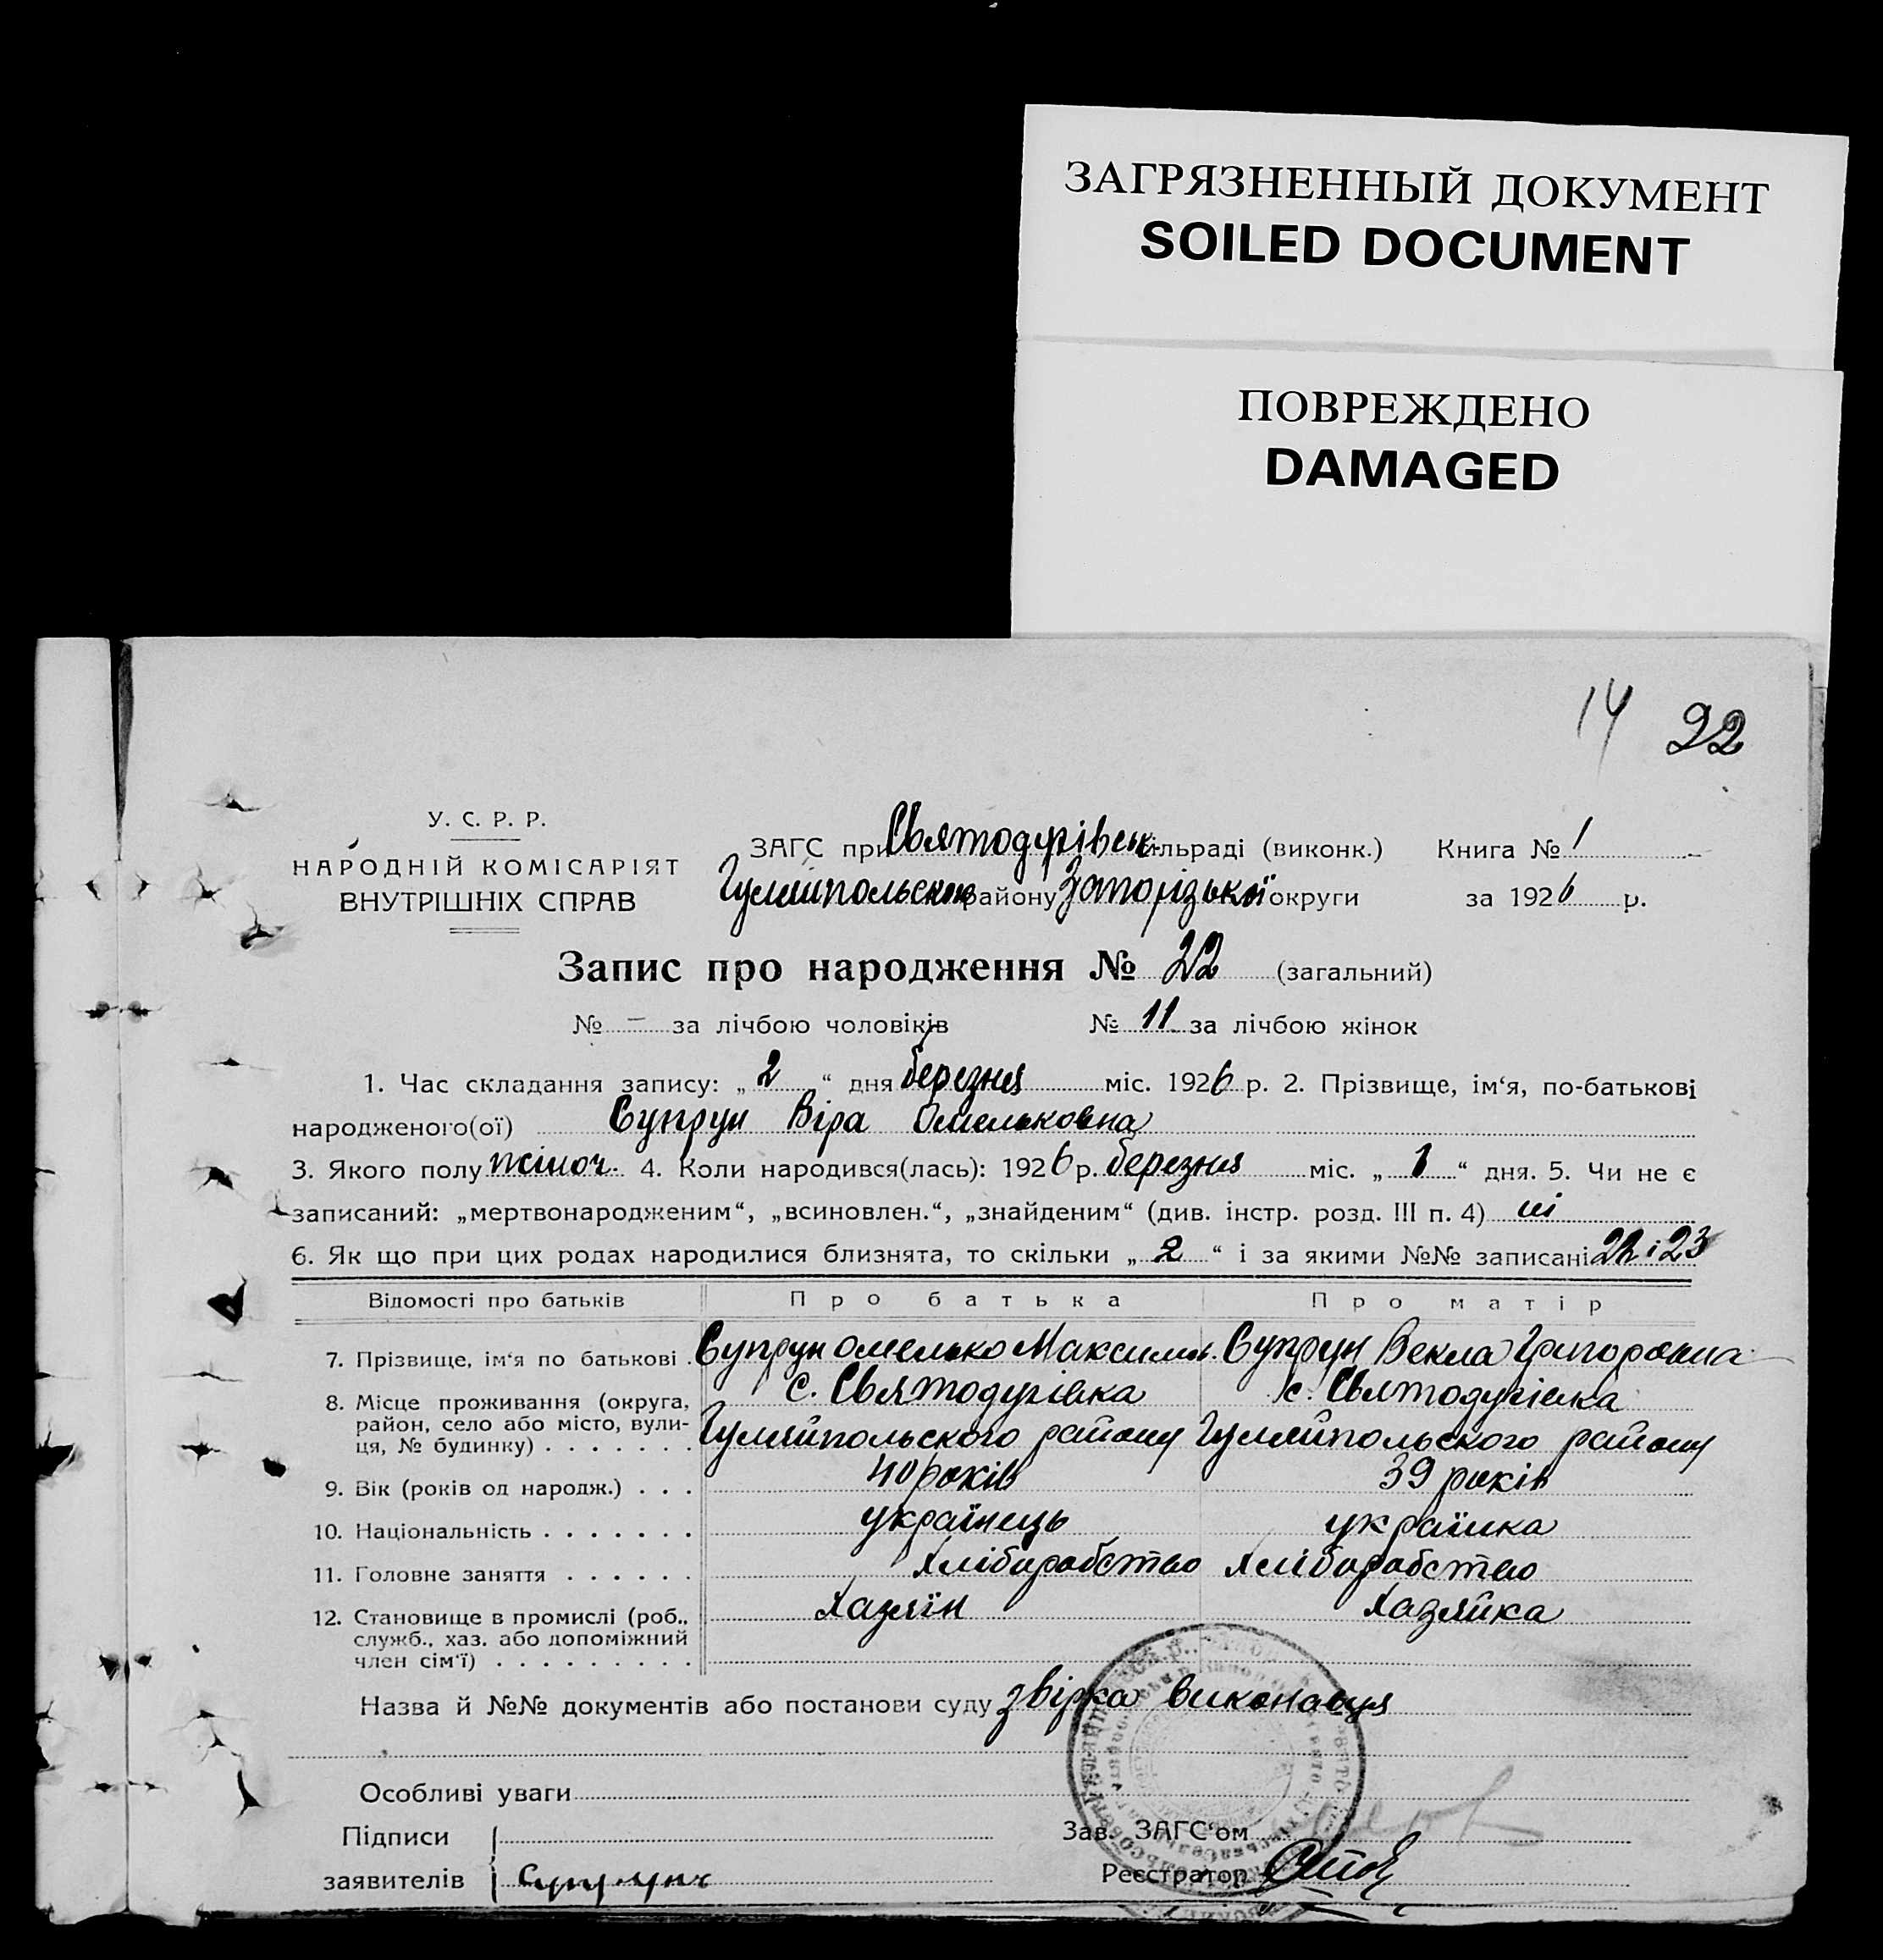 ЗАГРЯЗНЕННЫЙ ДОКУМЕНТ
SOILED DOCUMENT
ПОВРЕЖДЕНО
DAMAGED
14 22
У. С. Р. Р.
НАРОДНІЙ КОМІСАРІЯТ
ВНУТРІШНІХ СПРАВ
ЗАГС при Святодухівськ. сільраді (виконк.) Книга № 1
Гуляйпольськ району Запорізької округи за 1926 р.
Запис про народження № 22 (загальний)
№ – за лічбою чоловіків № 11 за лічбою жінок
1. Час складання запису: „ 2 “ дня березня міс. 1926 р. 2. Прізвище, ім‘я, по-батькові
народженого(ої) Супрун Віра Омельковна
3. Якого полу жіноч. 4. Коли народився(лась): 1926 р. березня міс. „ 1 “ дня. 5. Чи не є
записаний: „мертвонародженим“, „всиновлен.“, „знайденим“ (див. інстр. розд. III п. 4) ні
6. Як що при цих родах народилися близнята, то скільки „ 2 “ і за якими №№ записані 22 і 23
Відомості про батьків Про батька Про матір
7. Прізвище, ім‘я по батькові Супрун Омелько Максимов. Супрун Векла Григоровна
8. Місце проживання (округа, район, село або місто, вулиця, № будинку) с. Святодухівка с. Святодухівка
Гуляйпольского району Гуляйпольского району
9. Вік (років од народж.) 40 років 39 років
10. Національність українець українка
11. Головне заняття хліборобство хліборобство
12. Становище в промислі (роб., служб., хаз. або допоміжний член сім‘ї) хазяїн хазяйка
Назва й №№ документів або постанови суду звірка виконавця
Особливі уваги
Підписи
заявителів Супрун
Зав. ЗАГС‘ом
Реєстратор